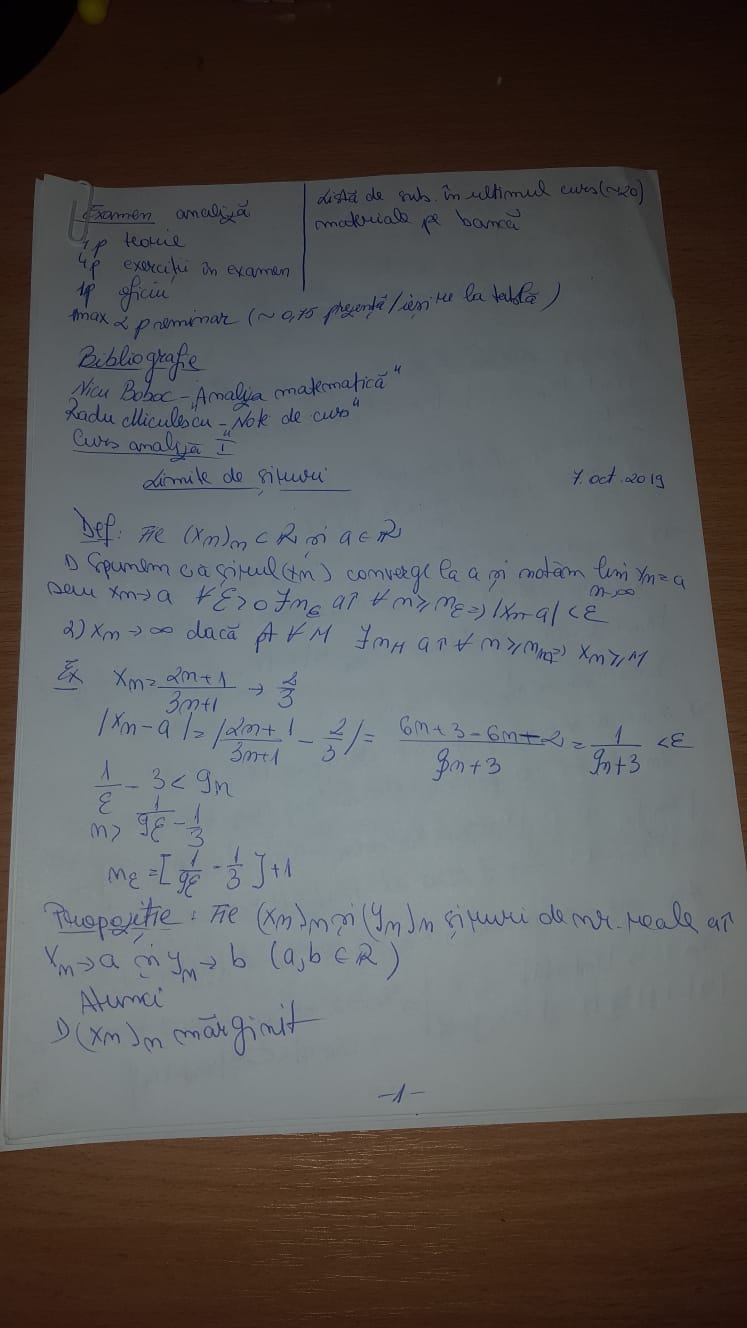 Examen analiză
4p teorie
4p exerciții în examen
1p oficiu
max 2 p seminar (~0,75 prezență/ieșire la tablă)
Listă de sub. în ultimul curs (~20)
materiale pe bancă
Bibliografie
Nicu Boboc - „Analiza matematică"
Radu Miculescu - „Note de curs"
Curs analiză I
Limite de șiruri
7. oct. 2019
Def: Fie (xn)n ⊂ R și a ∈ R
1) Spunem că șirul (xn) converge la a și notăm lim xn = a
n→∞
sau xn → a ∀ε>0 ∃nε aî ∀ n ≥ nε => |xn-a| < ε
2) xn → ∞ dacă ∀ M ∃ nM aî ∀ n ≥ nM => xn ≥ M
Ex xn = (2n+1)/(3n+1) → 2/3
|xn-a| = |(2n+1)/(3n+1) - 2/3| = (6n+3-6n-2)/(9n+3) = 1/(9n+3) < ε
1/ε - 3 < 9n
n > 1/9ε - 1/3
nε = [1/9ε - 1/3] + 1
Propoziție: Fie (xn)n și (yn)n șiruri de nr. reale aî
xn → a și yn → b (a, b ∈ R)
Atunci
1) (xn)n mărginit
-1-